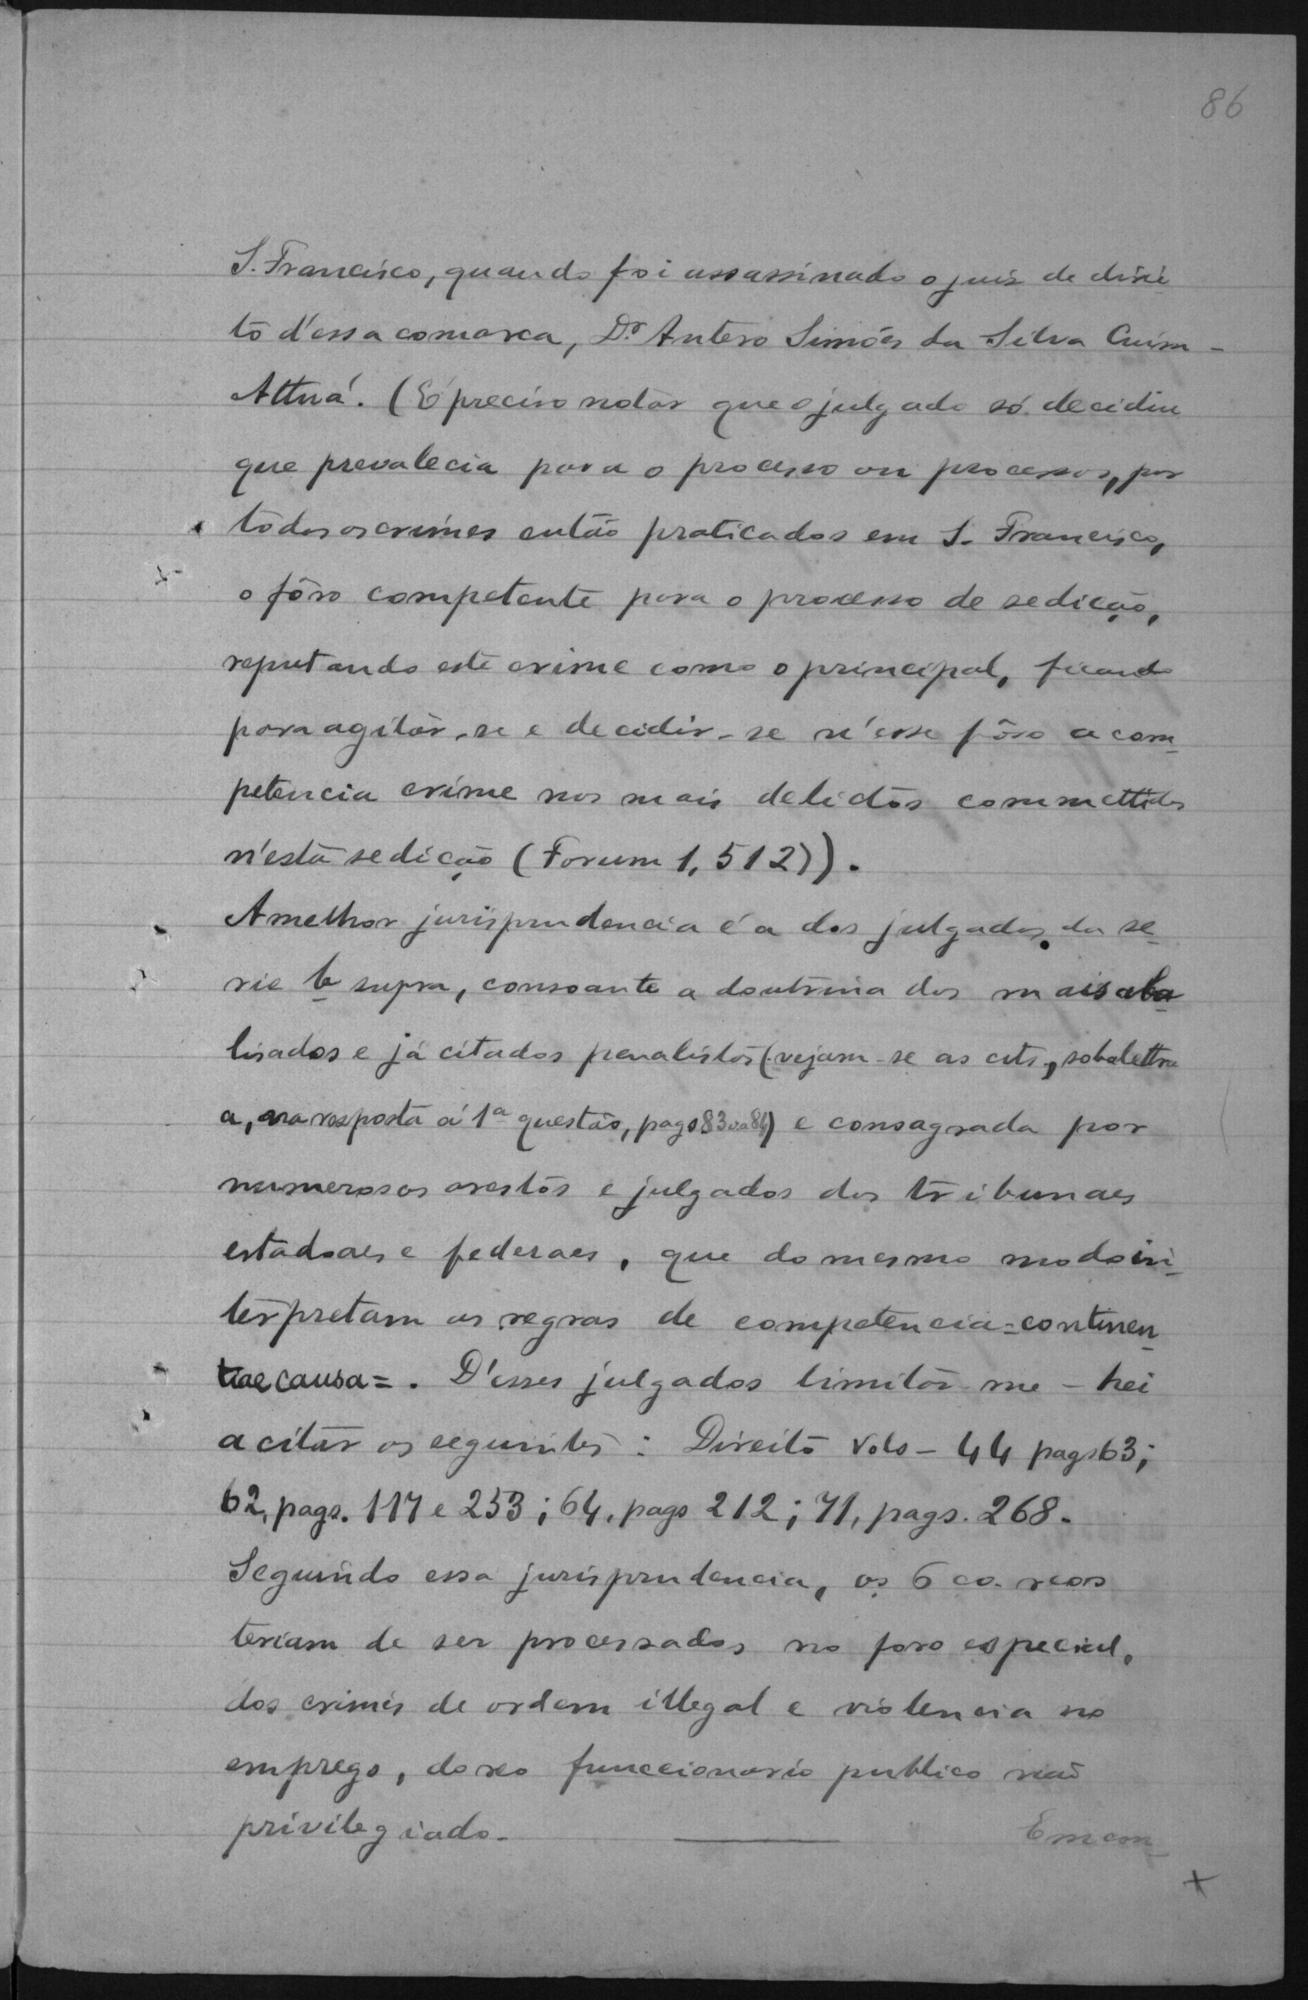 86
S. Francisco, quando foi assassinado o juis de direi
to d'essa comarca, Dr. Antero Simões da Silva Cuim-
Attuá. (É preciso notar que o julgado só decidiu
que prevalecia para o processo ou processos, por
todos os crimes então praticados em S. Francisco,
o fôro competente para o processo de sedicção,
reputando este crime como o principal, ficando
para agitar-se e decidir-se n'esse fôro a com-
petencia crime nos mais delictos commettidos
n'esta sedicção (Forum 1, 512)).
A melhor jurisprudencia é a dos julgados da se-
rie b supra, consoante a doutrina dos mais aba
lisados e já citados penalistas (vejam-se as cits, sob a lettra
a, na resposta á 1ª questão, pags 83 va 84) e consagrada por
numerosos arestos e julgados dos tribunaes
estadoaes e federaes, que do mesmo modo in-
terpretam as regras de competencia=continen
tiae causa=. D'esses julgados limitar-me-hei
a citar os seguintes: Direito Vols-44 pags 63;
62, pags. 117 e 253; 64, pags 212; 71, pags. 268.
Seguindo essa jurisprudencia, os 6 co-reos
teriam de ser processados no foro especial,
dos crimes de ordem illegal e violencia no
emprego, do reo funccionario publico não
privilegiado.
Em con-